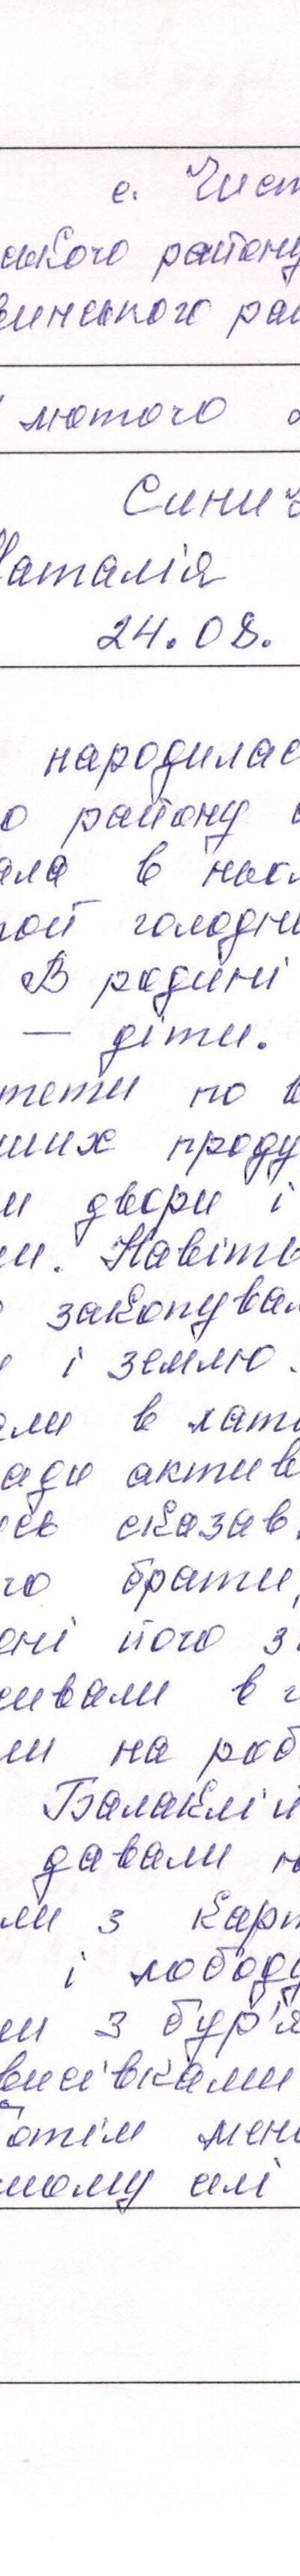 с. Чист
ського району
винського рай
лютого
Синиз
Наталія
24.08.
народилас
о району
ала в ньом
рой голодни
В родині
— діти.
тети по в
ших проду
и двори і
ми. Навіть
закопувал
и і землю.
али в хати
ади актив
сь сказав.
го брати,
ані його з
живали в
ли на роб
Балаклій
давали н
ли з карт
і лободу
ми з бур'я
висівками
Потім мен
ному селі